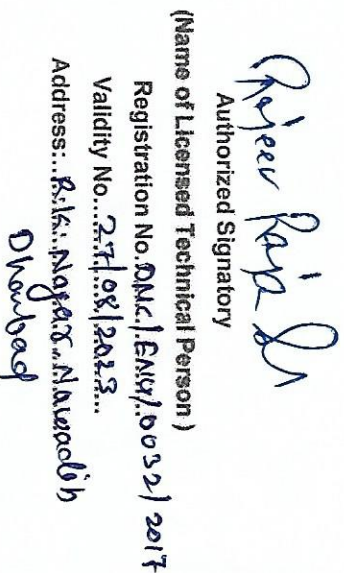 Rajeev Raja
Authorized Signatory
(Name of Licensed Technical Person)
Registration No. DMC/ENG/0032/2017
Validity No...27/08/2023...
Address:..R.K. Nagar..Nawadih
Dhanbad